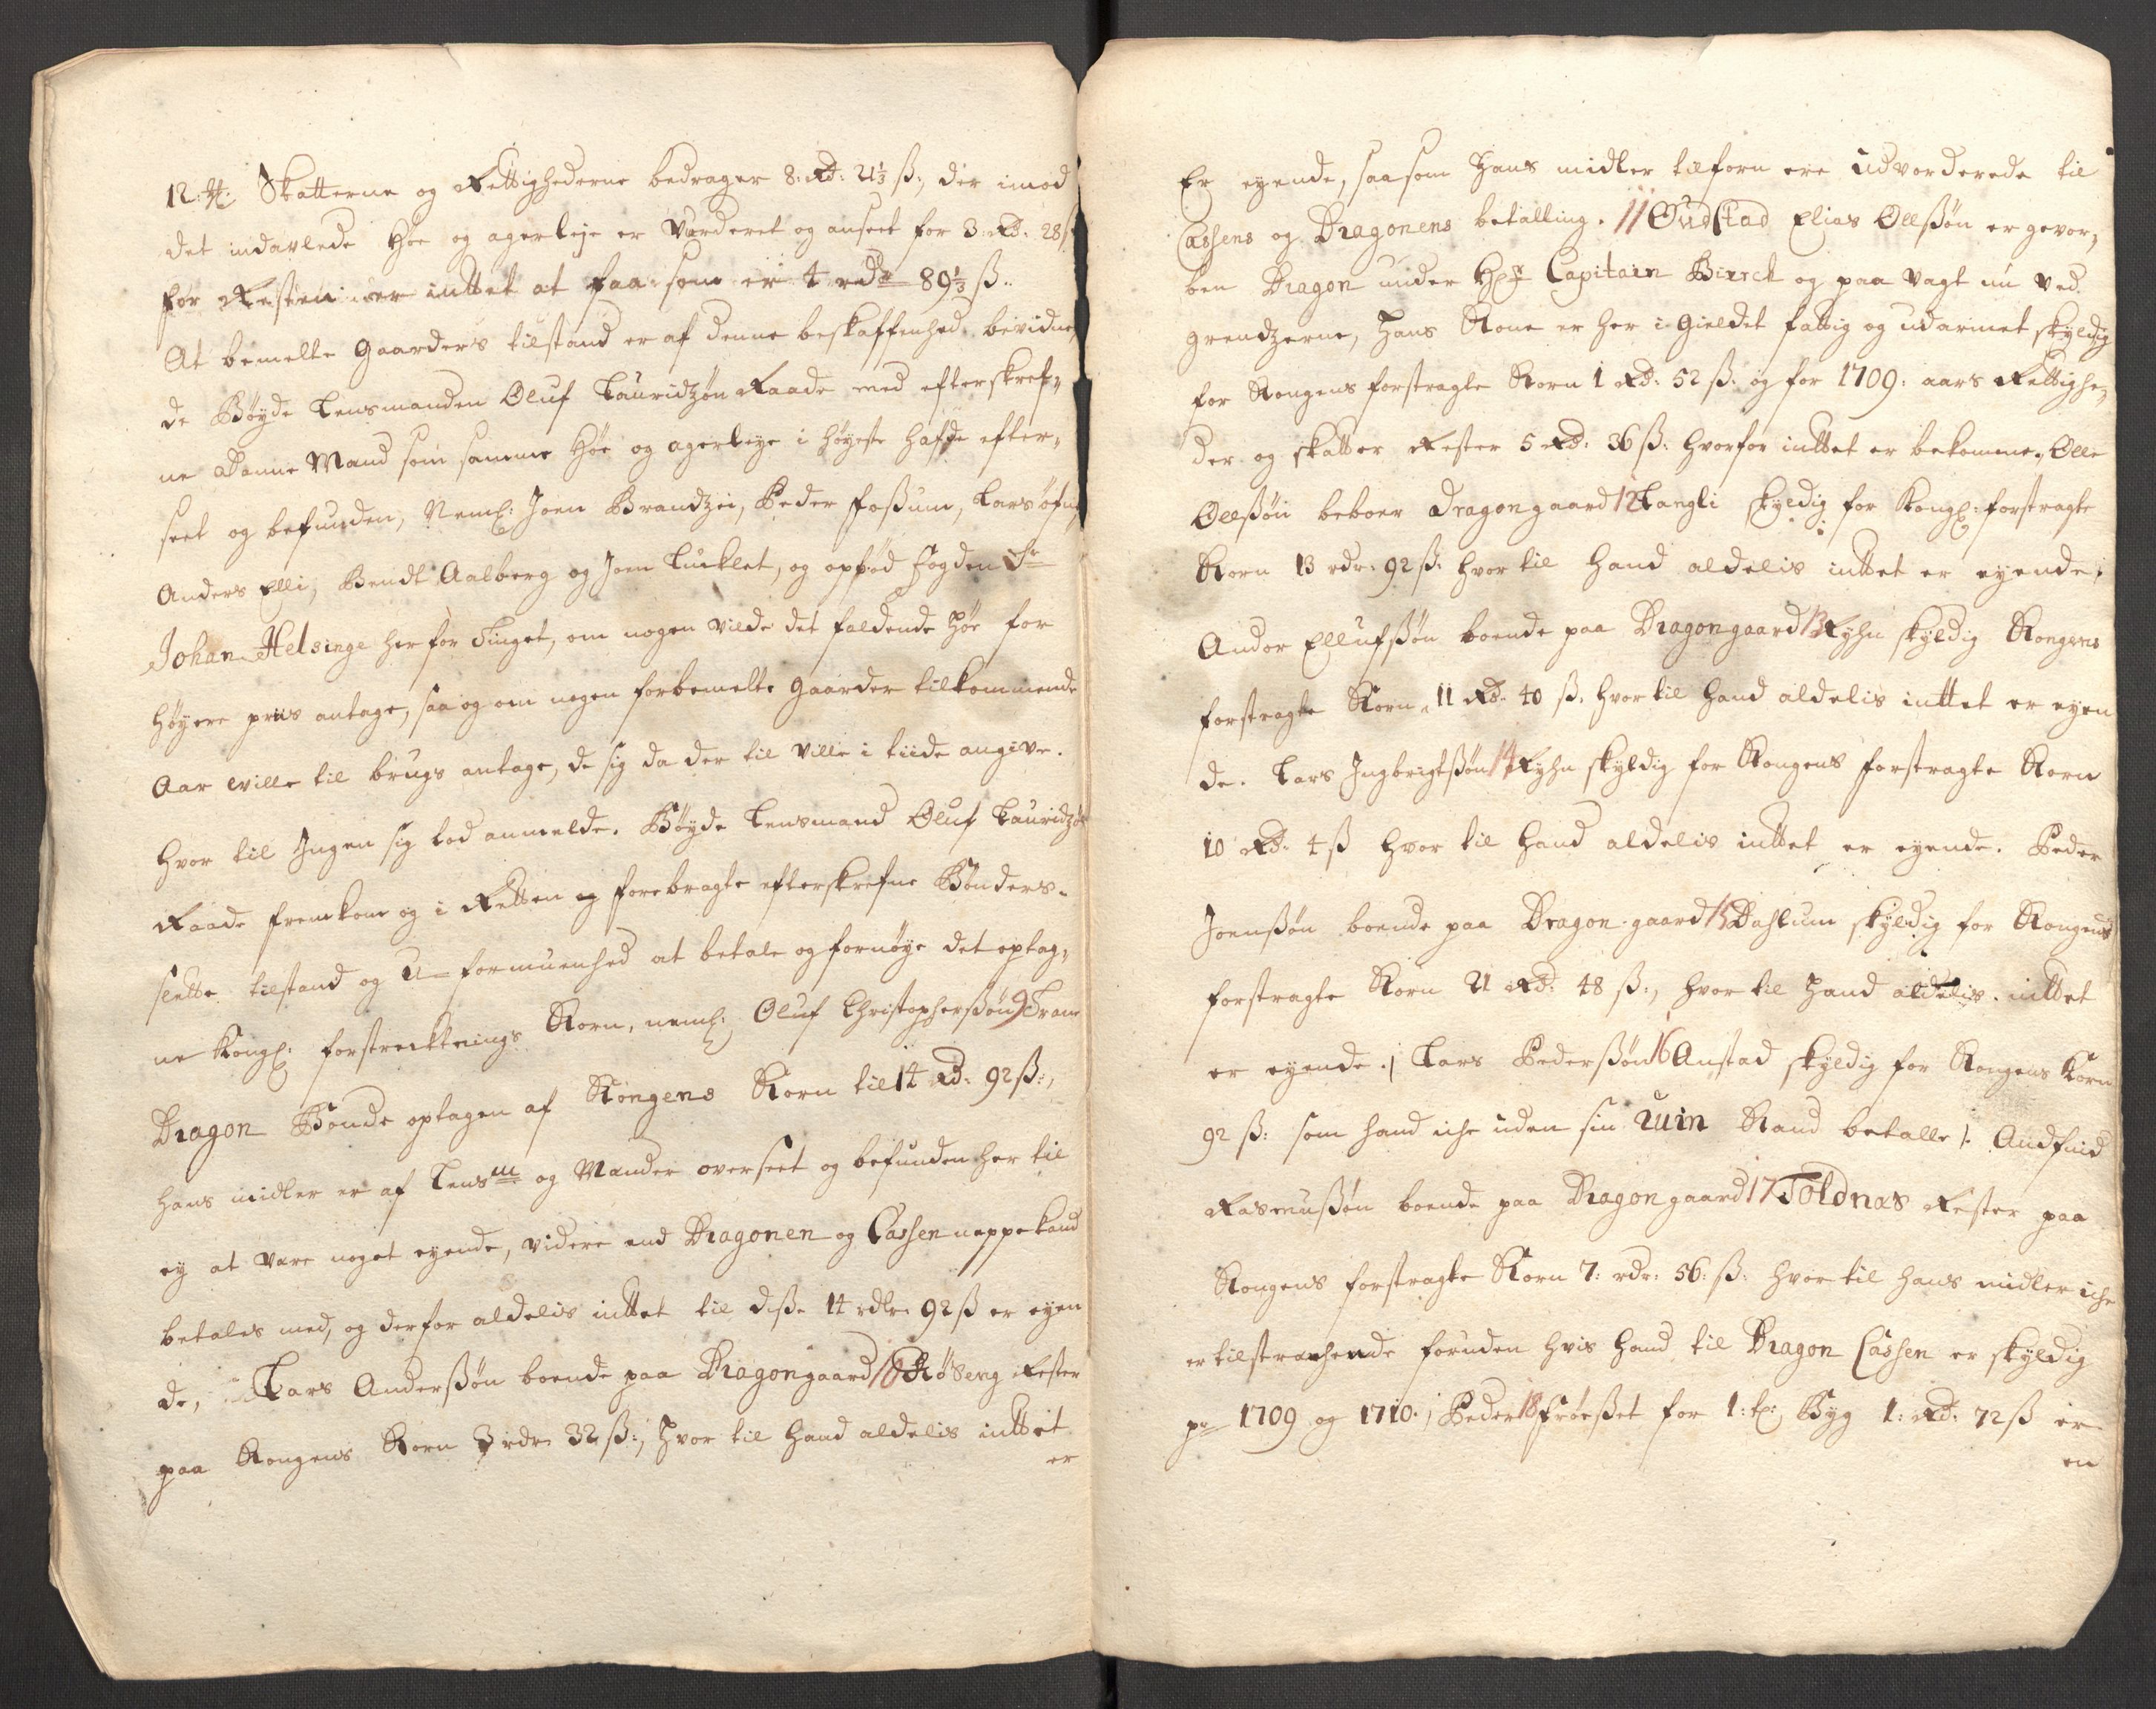 12: ₶: Skatterne og Rettighederne bedrager 8: Rd: 21⅓ ß:, der imod
det indavlede Høe og agerleje er Vurderet og anseet for 3: Rd: 28 ß
for Resten er inttet at faa som er 4 rdr 89⅓ ß..
At bemelte gaarders tilstand er af denne beskaffenhed bevidne,,
de Bøyde Lensmanden Oluf Lauridzøn Raade med efterskref,,
ne Danne Mand som samme Høe og agerleye i høyeste hafde efter,,
seet og befunden, Neml: Joen Brandzei, Peder Foßum, Lars Øfne
Anders Elli, Bendt Aalberg og Joen Lucklet, og opbød Fogden Sr
Johan Helsinge her for Tinget, om nogen vilde det faldende Høe for
høyere priis antage, saa og om nogen forbemelte gaarder tilkommende
Aar ville til brugs antage, de sig da der til ville i tiide angive.
hvor til Ingen sig lod anmelde. Bøyde Lensmand Oluf Lauridzøn
Raade fremkom og i Retten og forebragte efterskrefne Bønders
slette tilstand og U-formuenhed at betale og fornøye det optag,,
ne Kongl: forstrecktnings Korn, neml: Oluf Christophersøn 9 Trane
Dragon Bonde optagen af Kongens Korn til 14 Rd: 92 ß:,
hans midler er af Lensm og Mænder overseet og befunden her til
ey at være noget eyende, videre end Dragonen og Cassen neppe kand
betales med, og derfor aldelis inttet til diße 14 rdlr 92 ß er eyen
de, Lars Anderßøn boende paa Dragongaard 10 Røseng Rester
paa Kongens Korn 3 rdr 32 ß:, hvor til hand aldelis inttet
er
Er eyende, saasom Hans midler tilforn ere udvorderede til
Cassens og Dragonens betalling. 11 Gudstad Elias Ollßøn er gevor,,
ben Dragon under Hr Capitain Bierck og paa Vagt nu ved
grendzerne, Hans Kone er her i Gieldet fattig og udarmet skyldig
for Kongens forstragte Korn 1 Rd: 52 ß: og for 1709: aars Rettighe,,
der og skatter Rester 5 Rd: 36 ß: hvorfor inttet er bekomme., Olle
Ollßøn beboer Dragongaard 12 Langli skyldig for Kongl: forstragte
Korn 13 rdr: 92 ß: hvor til hand aldelis inttet er eyende.
Andor Ellufßøn boende paa Dragongaard 13 Ryhn skyldig Kongens
forstragte Korn 11 Rd: 40 ß, hvor til hand aldelis inttet er eyen
de. Lars Ingbrigtßøn 14 Ryhn skyldig for Kongens forstragte Korn
10 Rd: 4 ß hvor til hand aldelis inttet er eyende. Peder
Joenßøn boende paa Dragon-gaard 15 Dahlum skyldig for Kongens
forstragte Korn 21 Rd: 48 ß:, hvor til Hand aldelis inttet
er eyende. Lars Pederßøn 16 Anstad skyldig for Kongens Korn
92 ß: som hand iche uden sin ruin Kand betalle. Audfind
Rasmußøn boende paa Dragongaard 17 Toldnæs Rester paa
Kongens forstragte Korn 7: rdr: 56: ß: hvor til hans midler iche
er tilstrechende foruden hvis hand til Dragon Cassen er skyldig
pr 1709 og 1710. Peder 18 Frøeßet for 1: t: Byg 1: Rd: 72 ß er
en